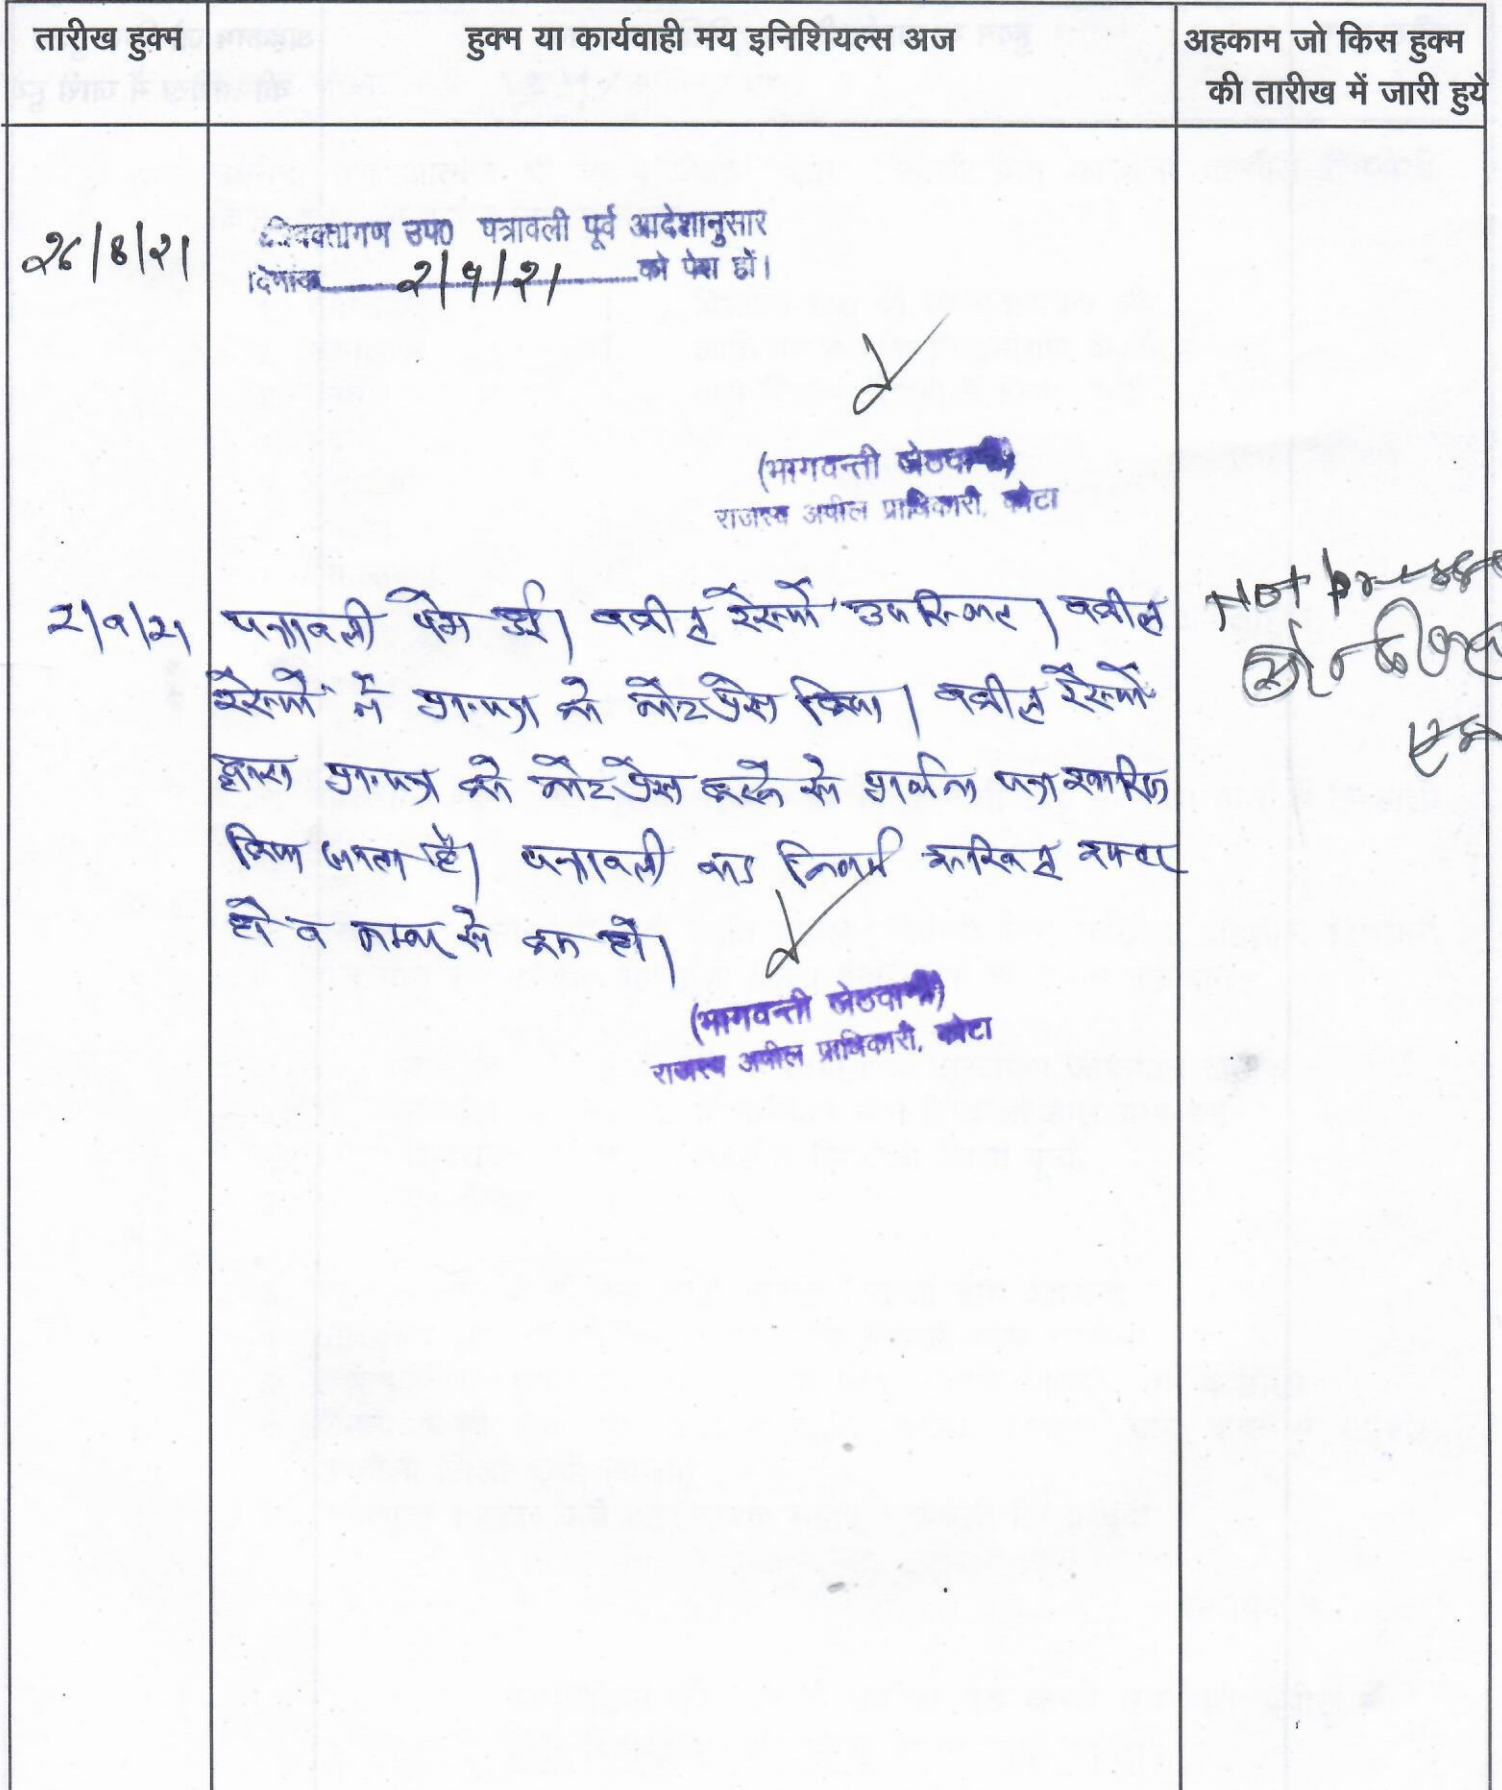 तारीख हुक्म
हुक्म या कार्यवाही मय इनिशियल्स अज
अहकाम जो किस हुक्म
की तारीख में जारी हुये
26/8/21
अभिवक्तागण उप0 पत्रावली पूर्व आदेशानुसार
दिनांक 2/9/21 को पेश हों।
(भागवन्ती जेठवानी)
राजस्व अपील प्राधिकारी, कोटा
2/9/21
पत्रावली पेश हुई। वकील रेस्पो उपस्थित। वकील
रेस्पो ने प्रा०पत्र को नोटप्रेस किया। वकील रेस्पो
द्वारा प्रा०पत्र को नोटप्रेस करने से प्रार्थना पत्र खारिज
किया जाता है। पत्रावली का निर्णय शामिल
हो व नम्बर से कम हो।
Not press
(भागवन्ती जेठवानी)
राजस्व अपील प्राधिकारी, कोटा